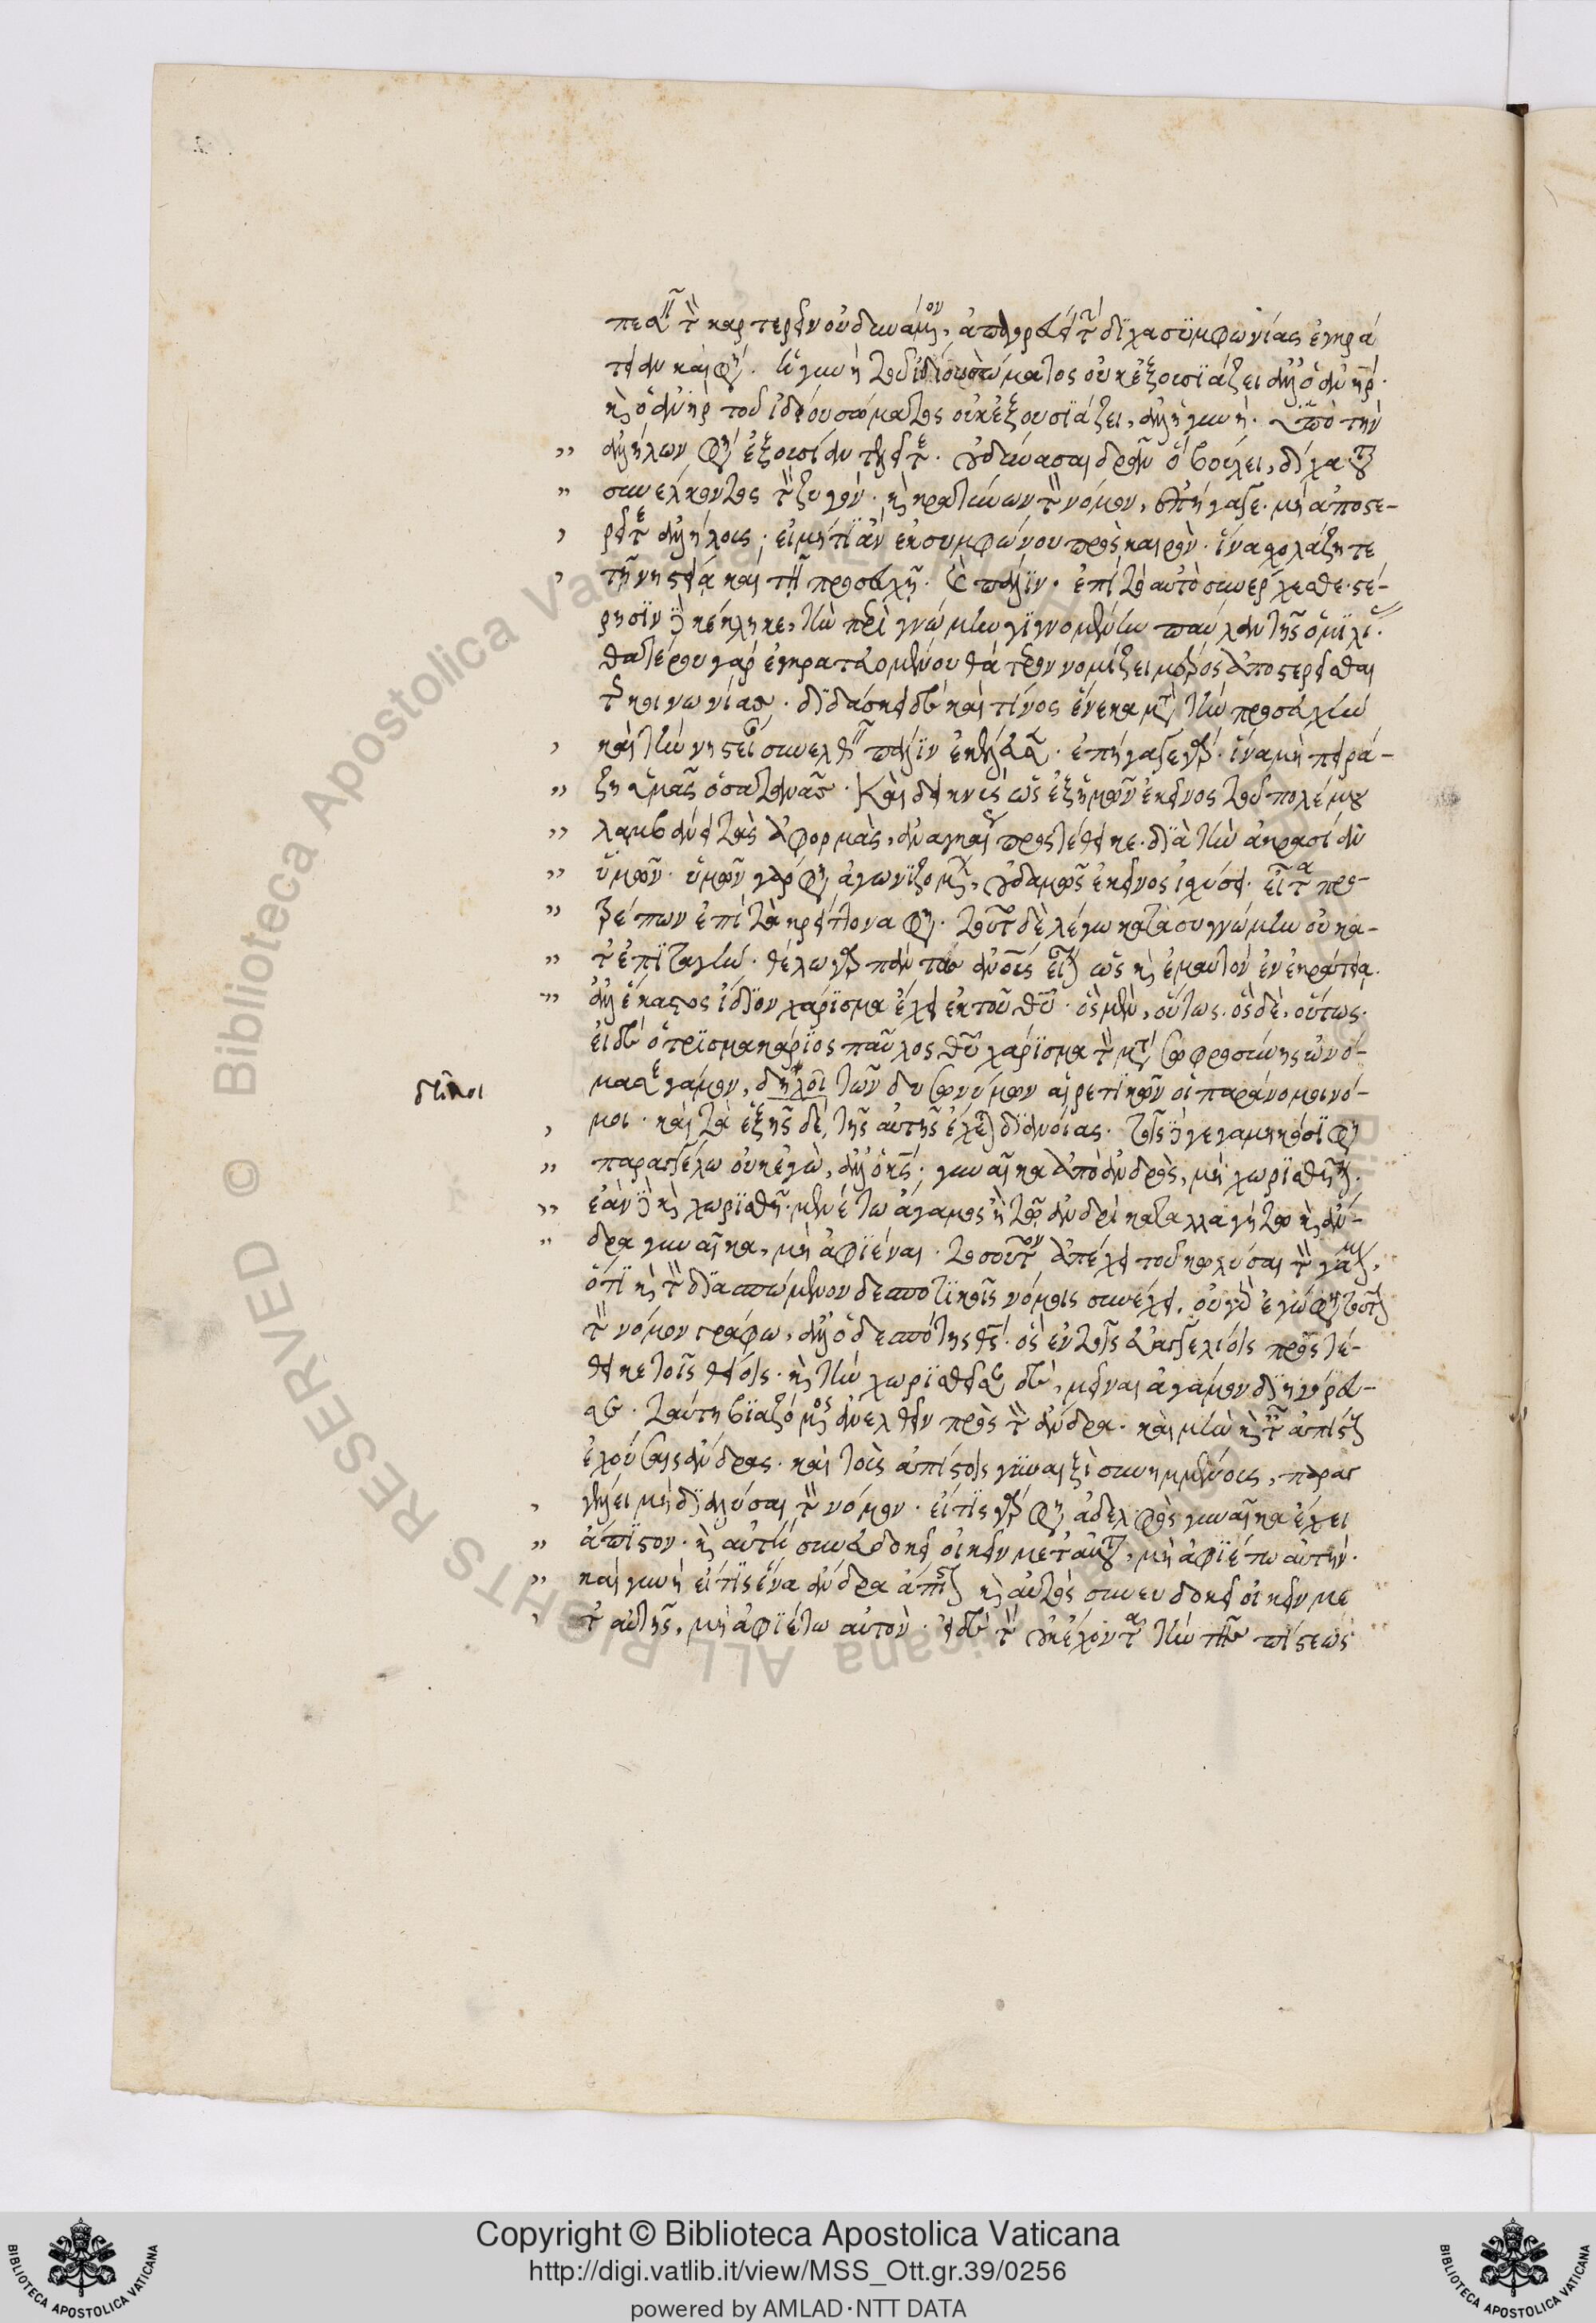 καρτερεῖν οὐ δυνάμενον, ἀπαγορεύει τὴν δίχα συμφωνίας ἐγκρά
τειαν καὶ φησί. ἡ γυνὴ τοῦ ἰδίου σώματος οὐκ ἐξουσιάζει ἀλλ' ὁ ἀνήρ.
καὶ ὁ ἀνὴρ τοῦ ἰδίου σώματος οὐκ ἐξουσιάζει, ἀλλ' ἡ γυνή. ὑπὸ τὴν
ἀλλήλων φησὶ ἐξουσίαν τελεῖτε. οὐ δύνασαι δρᾶν ὃ βούλει, δίχα τοῦ
συνέλκοντος τὸν ζυγόν. καὶ κρατύνων τὸν νόμον, ἐπήγαγε. μὴ ἀποστε-
ρεῖτε ἀλλήλους. εἰ μήτι ἂν ἐκ συμφώνου πρὸς καιρὸν. ἵνα σχολάζητε
τῇ νηστείᾳ καὶ τῇ προσευχῇ. καὶ πάλιν ἐπὶ τὸ αὐτὸ συνέρχεσθε. στέ-
ρησιν δὲ κέκληκε, τὴν παρὰ γνώμην γιγνομένην παρὰ θατέρου τῆς ὁμιλίας.
θατέρου γὰρ ἐγκρατευομένου θάτερον νομίζει μέρος ἀποστερεῖσθαι
τῆς κοινωνίας. διδάσκει δὲ καὶ τίνος ἕνεκα μετὰ τὴν προσευχὴν
καὶ τὴν νηστείαν συνελθεῖν πάλιν ἐκέλευσεν. ἐπήγαγε γάρ. ἵνα μὴ πειρά-
ζῃ ὑμᾶς ὁ σατανᾶς. καὶ δεικνὺς ὡς ἐξ ἡμῶν ἐκεῖνος τοῦ πολέμου
λαμβάνει τὰς ἀφορμὰς, ἀναγκαίως προστέθεικε. διὰ τὴν ἀκρασίαν
ὑμῶν. ὑμῶν γάρ φησι ἀγωνιζομένων, οὐδαμῶς ἐκεῖνος ἰσχύσει. εἶτα προ-
τρέπων ἐπὶ τὰ κρείττονα φησί. τοῦτο δὲ λέγω κατὰ συγγνώμην οὐ κα-
τ' ἐπιταγήν. θέλω γὰρ πάντας ἀνθρώπους εἶναι ὡς καὶ ἐμαυτὸν ἐν ἐγκρατείᾳ.
ἀλλ' ἕκαστος ἴδιον χάρισμα ἔχει ἐκ τοῦ θεοῦ. ὃς μὲν, οὕτως. ὃς δὲ, οὕτως.
εἰ δὲ ὁ τρισμακάριος παῦλος θεοῦ χάρισμα τὸν μετὰ σωφροσύνης ὠνό-
μασε γάμον, δῆλοι τῶν δυσωνύμων αἱρετικῶν οἱ παράνομοι νό-
δῆλοι
μοι. καὶ τὰ ἑξῆς δὲ τῆς αὐτῆς ἔχεται διανοίας. τοῖς δὲ γεγαμηκόσι φησὶ
παραγγέλλω οὐκ ἐγὼ, ἀλλ' ὁ κύριος. γυναῖκα ἀπὸ ἀνδρὸς, μὴ χωρισθῆναι.
ἐὰν δὲ καὶ χωρισθῇ. μενέτω ἄγαμος ἢ τῷ ἀνδρὶ καταλλαγήτω καὶ ἄν-
δρα γυναῖκα, μὴ ἀφιέναι. τοσοῦτον ἀπέχει τοῦ κωλύσαι τὸν γάμον,
ὅτι καὶ τὸν διασπώμενον δεσποτικοῖς νόμοις συνέχει. οὐ γὰρ ἐγώ φησι τοῦτον
τὸν νόμον γράφω, ἀλλ' ὁ δεσπότης θεός. ὃς ἐν τοῖς εὐαγγελίοις προστέ-
θεικε τοῖς θείοις. καὶ τὴν χωρισθεῖσαν δὲ, μεῖναι ἄγαμον διηγόρευ-
σε. ταύτῃ βιαζόμενος ἀνελθεῖν πρὸς τὸν ἄνδρα. καὶ μὴν καὶ ταῖς ἀπίστους
ἐχούσαις ἄνδρας. καὶ τοῖς ἀπίστοις γυναιξὶ συνημμένοις, παρακε-
λεύει μὴ διαλύσαι τὸν νόμον. εἴ τις γάρ φησι ἀδελφὸς γυναῖκα ἔχει
ἄπιστον. καὶ αὐτὴ συνευδοκεῖ οἰκεῖν μετ' αὐτοῦ, μὴ ἀφιέτω αὐτήν.
καὶ γυνὴ εἴ τις ἕνα ἄνδρα ἄπιστον καὶ αὐτὸς συνευδοκεῖ οἰκεῖν με
τ' αὐτῆς, μὴ ἀφιέτω αὐτὸν. εἰ δὲ τὸν οὐκ ἔχοντα τὴν τῆς πίστεως
Copyright © Biblioteca Apostolica Vaticana
http://digi.vatlib.it/view/MSS_Ott.gr.39/0256
powered by AMLAD·NTT DATA
BIBLIOTECA APOSTOLICA VATICANA
BIBLIOTECA APOSTOLICA VATICANA
© Biblioteca Apostolica Vaticana ALL RIGHTS RESERVED